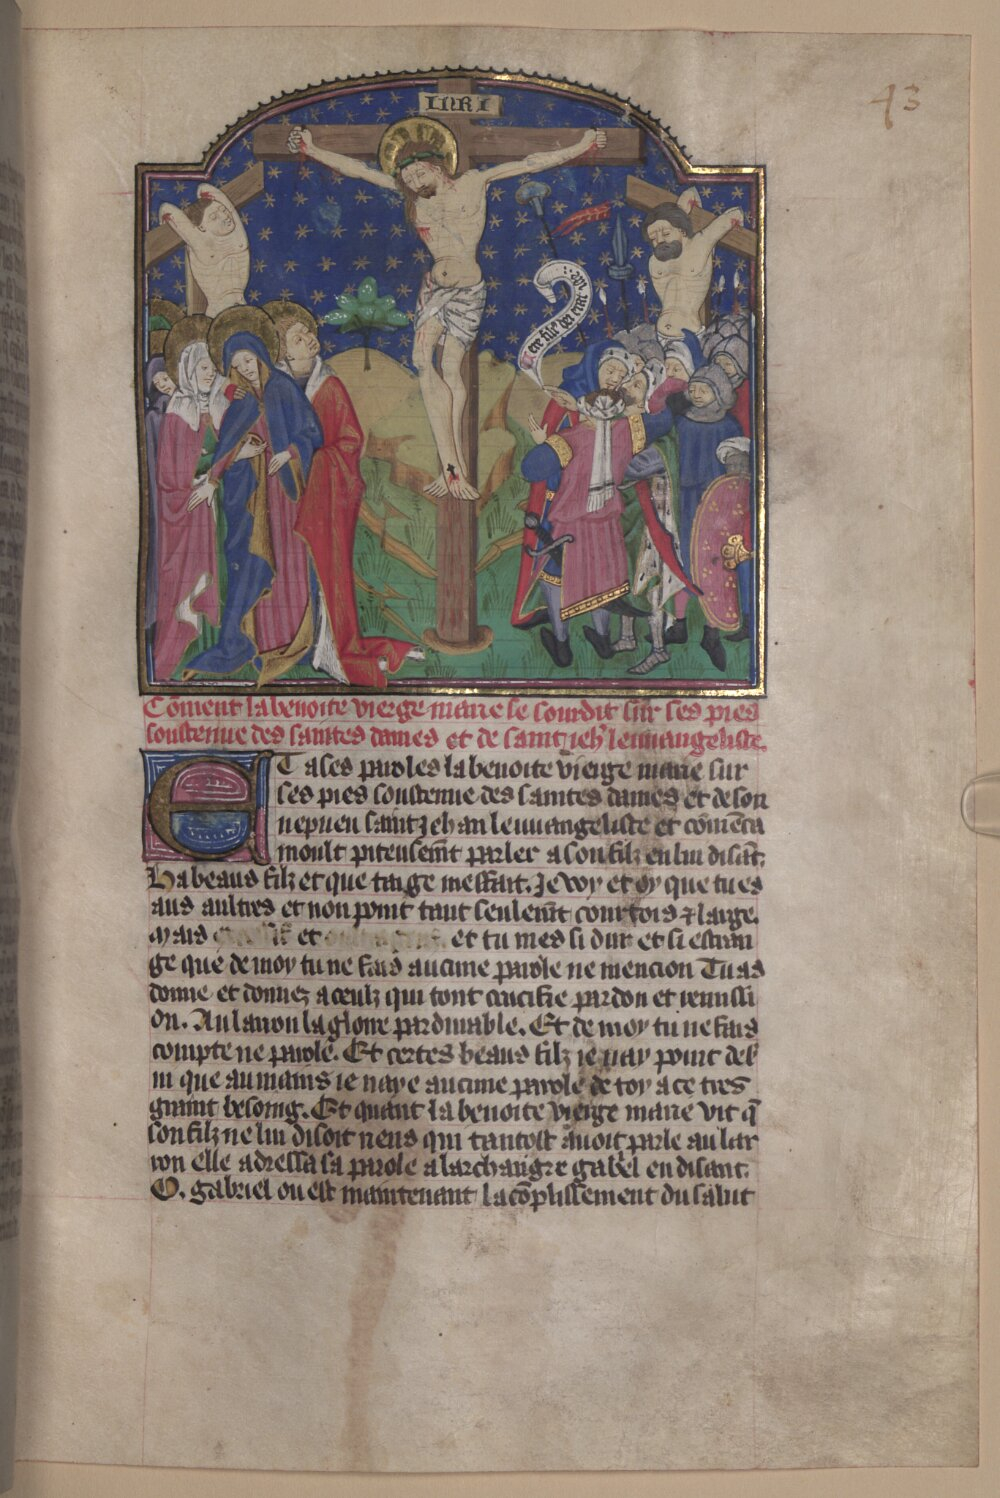 43
INRI
vere fili⁹ dei erat iste
Cõment la benoite vierge marie se sourdit sur ses pies
soustenue des saintes dames et de saint jeh̃ leuuangeliste.
Et a ses paroles la benoite vierge marie sur
ses pies soustenue des saintes dames et de son
nepueu saint jehan leuuangeliste et cõmẽca
moult piteusem̃t parler a son filz en lui disãt.
Ha beaus filz et que tai ge meffait. Je voy et oy que tu es
aus aultres et non point tant seulem̃t courtois ⁊ large.
Mais et et tu mes si dur et si estran
ge que de moy tu ne fais aucune parole ne mencion Tu as
donne et donnez a ceulz qui tont crucifie pardon et remissi
on. Au larron la gloire pardurable. Et de moy tu ne fais
compte ne parole. Et certes beaus filz ie nay point des̃
ui que au mains ie naye aucune parole de toy a ce tres
graint besoing. Et quant la benoite vierge marie vit q̃
son filz ne lui disoit riens qui tantost auoit parle au lar
ron elle adressa sa parole a larchangre gab̃el en disant.
O. gabriel ou est maintenant la cõplissement du salut